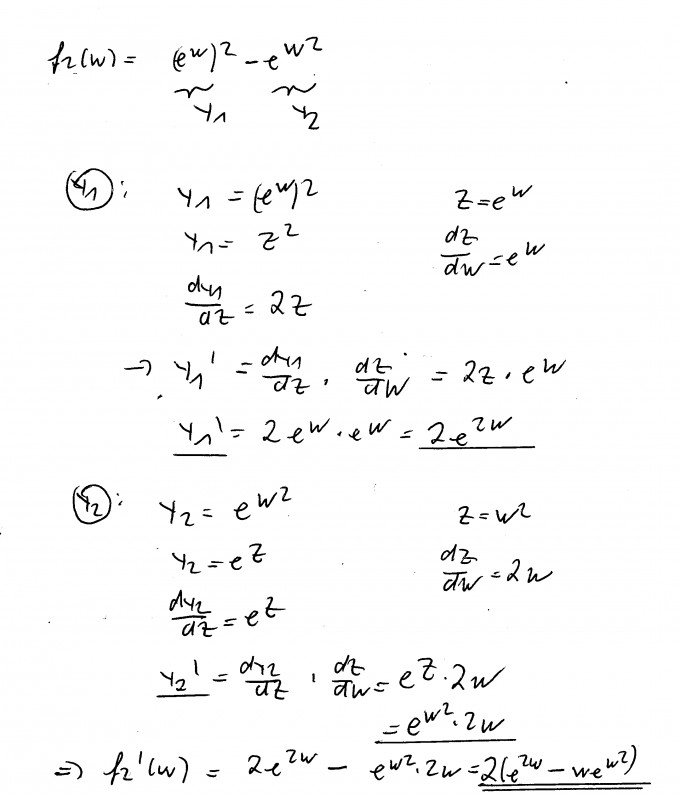 f₂(w) = (e^w)² - e^(w²)
y₁ y₂
(y₁): y₁ = (e^w)² z = e^w
y₁ = z² dz/dw = e^w
dy₁/dz = 2z
→ y₁' = dy₁/dz · dz/dw = 2z · e^w
y₁' = 2e^w · e^w = 2e^(2w)
(y₂): y₂ = e^(w²) z = w²
y₂ = e^z dz/dw = 2w
dy₂/dz = e^z
y₂' = dy₂/dz · dz/dw = e^z · 2w
= e^(w²) · 2w
⇒ f₂'(w) = 2e^(2w) - e^(w²) · 2w = 2(e^(2w) - we^(w²))